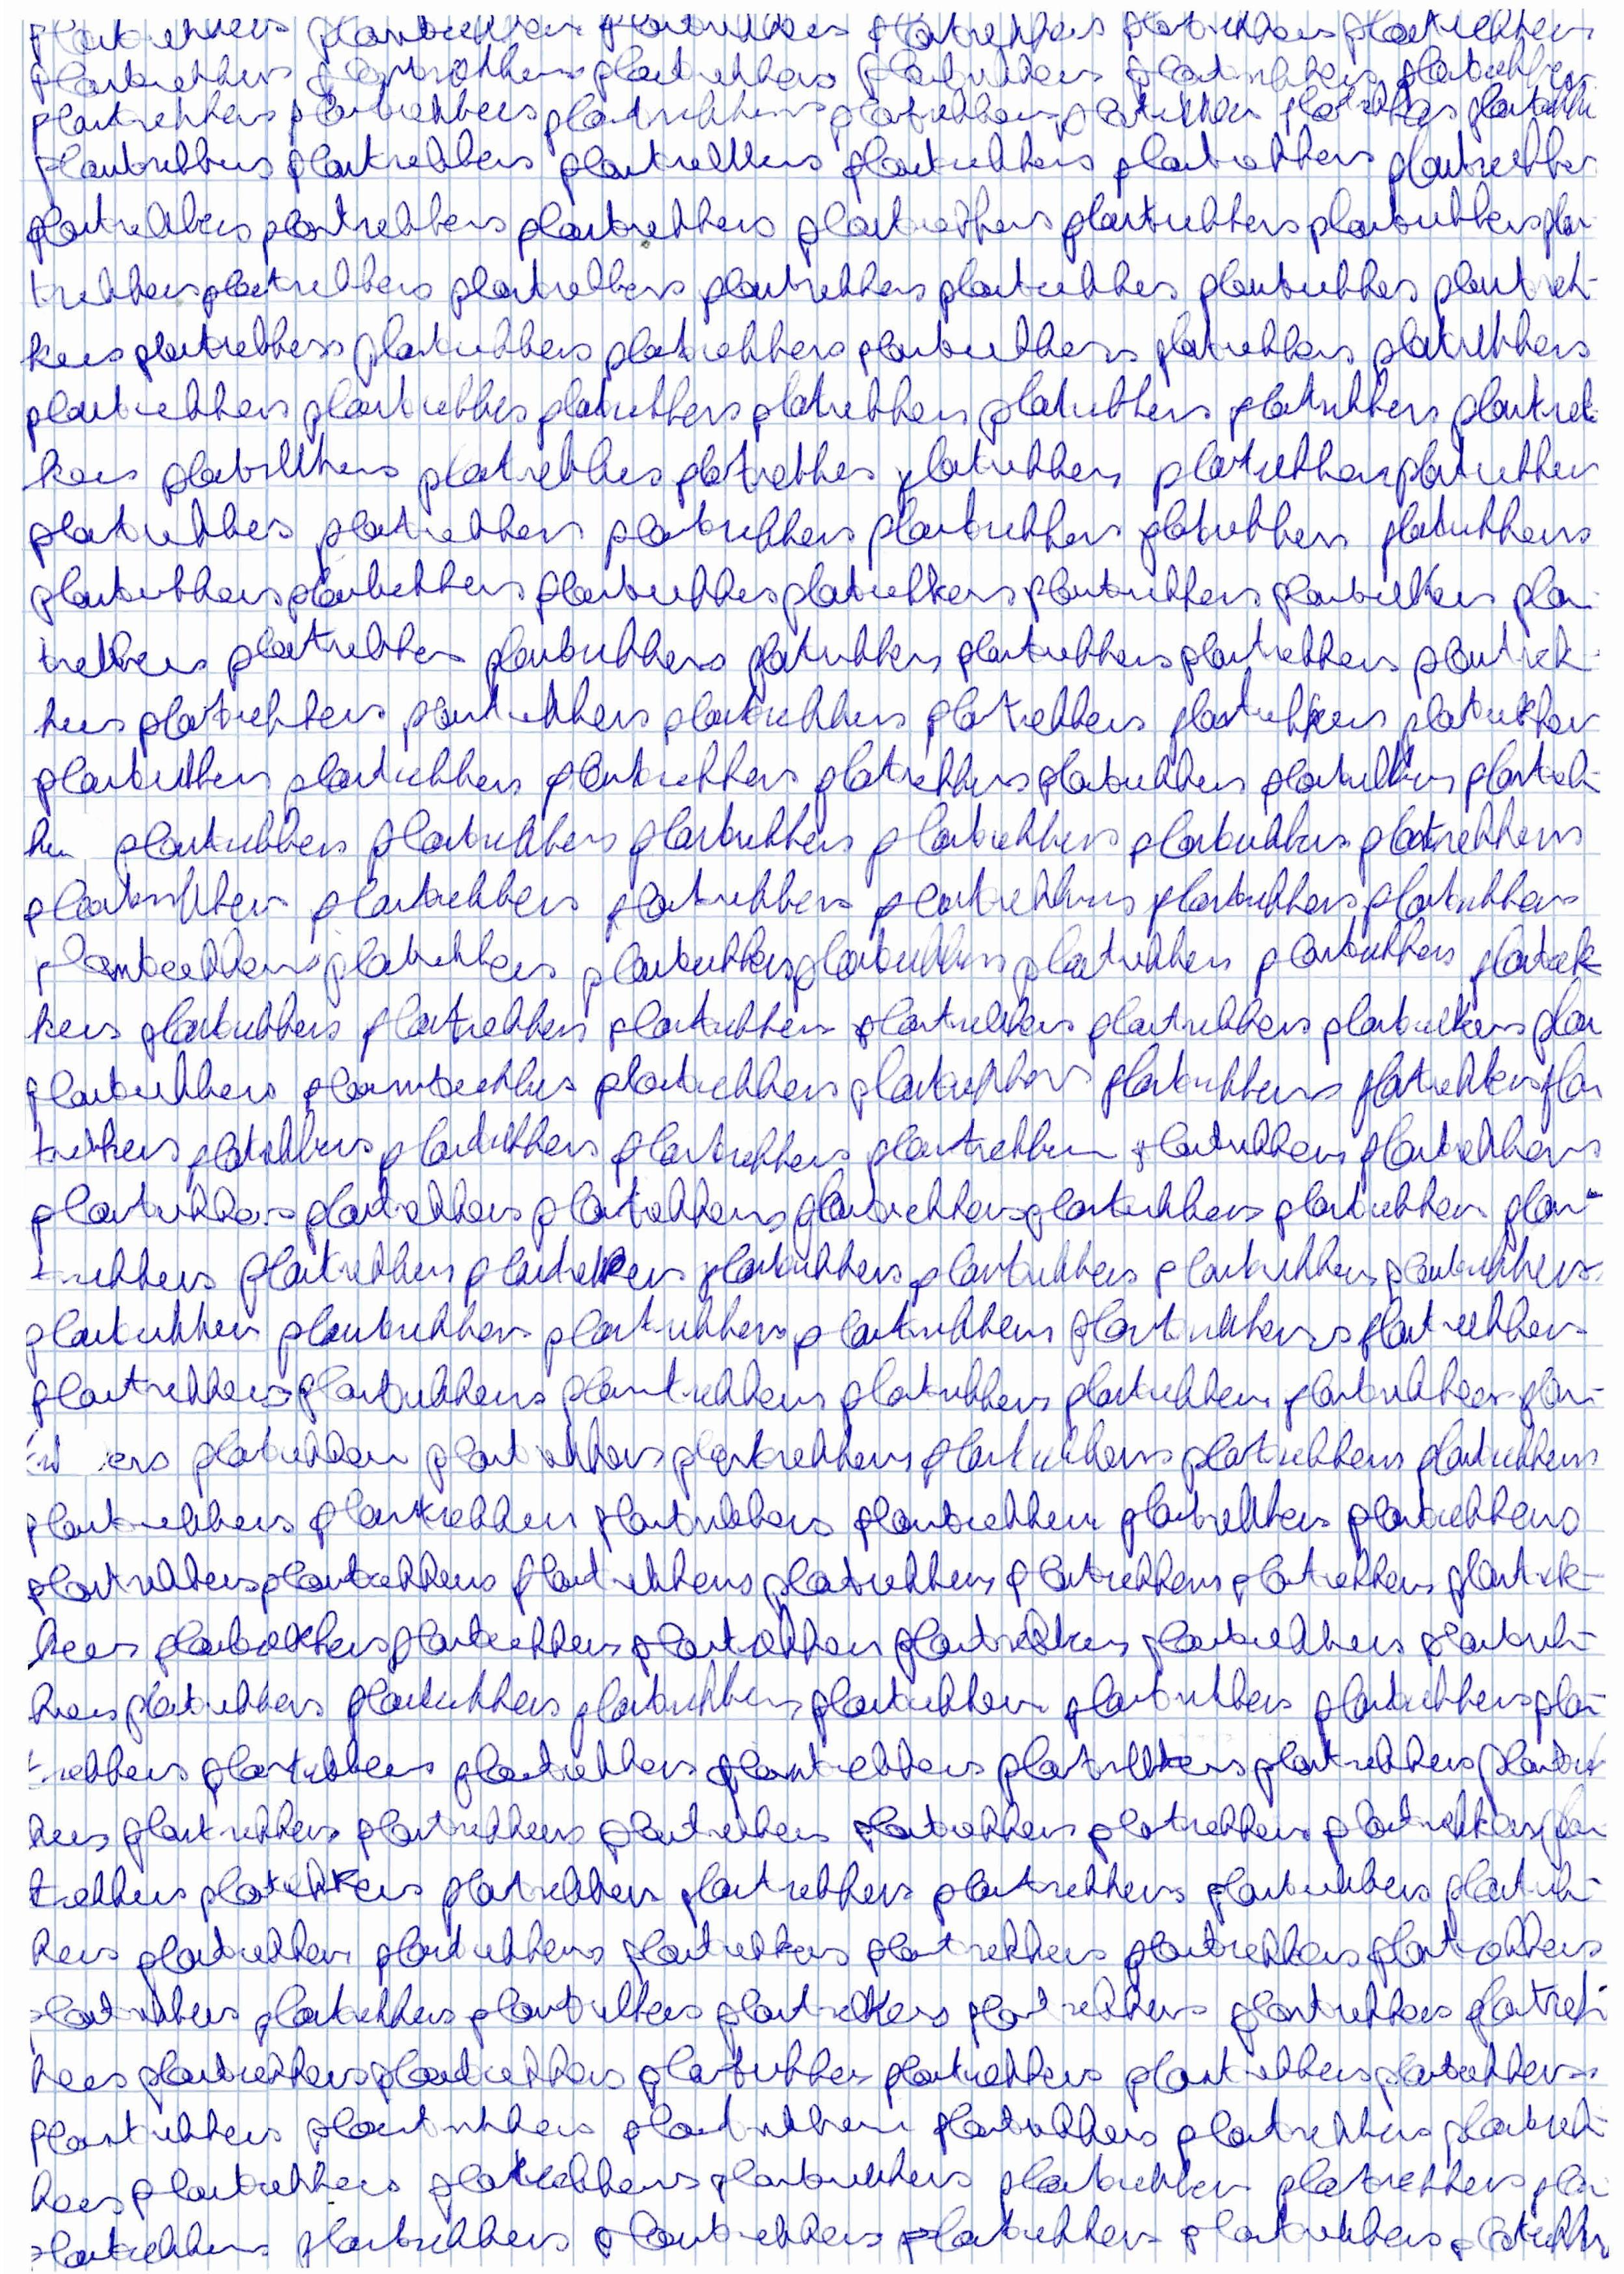 plantrekkers plantrekkers plantrekkers plantrekkers plantrekkers plantrekkers
plantrekkers plantrekkers plantrekkers plantrekkers plantrekkers plantrekkers
plantrekkers plantrekkers plantrekkers plantrekkers plantrekkers plantrekkers plantrekke
plantrekkers plantrekkers plantrekkers plantrekkers plantrekkers plantrekkers
plantrekkers plantrekkers plantrekkers plantrekkers plantrekkers plantrekkers plan
trekkers plantrekkers plantrekkers plantrekkers plantrekkers plantrekkers plantrek-
kers plantrekkers plantrekkers plantrekkers plantrekkers plantrekkers plantrekkers
plantrekkers plantrekkers plantrekkers plantrekkers plantrekkers plantrekkers plantrek
kers plantrekkers plantrekkers plantrekkers plantrekkers plantrekkers plantrekkers
plantrekkers plantrekkers plantrekkers plantrekkers plantrekkers plantrekkers
plantrekkers plantrekkers plantrekkers plantrekkers plantrekkers plantrekkers plan-
trekkers plantrekkers plantrekkers plantrekkers plantrekkers plantrekkers plantrek-
kers plantrekkers plantrekkers plantrekkers plantrekkers plantrekkers plantrekkers
plantrekkers plantrekkers plantrekkers plantrekkers plantrekkers plantrekkers plantrek-
kers plantrekkers plantrekkers plantrekkers plantrekkers plantrekkers plantrekkers
plantrekkers plantrekkers plantrekkers plantrekkers plantrekkers plantrekkers
plantrekkers plantrekkers plantrekkers plantrekkers plantrekkers plantrekkers plantrek
kers plantrekkers plantrekkers plantrekkers plantrekkers plantrekkers plantrekkers plan
plantrekkers plantrekkers plantrekkers plantrekkers plantrekkers plantrekkers plan
trekkers plantrekkers plantrekkers plantrekkers plantrekkers plantrekkers plantrekkers
plantrekkers plantrekkers plantrekkers plantrekkers plantrekkers plantrekkers plan-
trekkers plantrekkers plantrekkers plantrekkers plantrekkers plantrekkers plantrekkers
plantrekkers plantrekkers plantrekkers plantrekkers plantrekkers plantrekkers
plantrekkers plantrekkers plantrekkers plantrekkers plantrekkers plantrekkers plan-
plantrekkers plantrekkers plantrekkers plantrekkers plantrekkers plantrekkers
plantrekkers plantrekkers plantrekkers plantrekkers plantrekkers plantrekkers
plantrekkers plantrekkers plantrekkers plantrekkers plantrekkers plantrekkers plantrek-
kers plantrekkers plantrekkers plantrekkers plantrekkers plantrekkers plantrek-
kers plantrekkers plantrekkers plantrekkers plantrekkers plantrekkers plantrekkers plan-
trekkers plantrekkers plantrekkers plantrekkers plantrekkers plantrekkers plantrek
kers plantrekkers plantrekkers plantrekkers plantrekkers plantrekkers plantrekkers plan
trekkers plantrekkers plantrekkers plantrekkers plantrekkers plantrekkers plantrek-
kers plantrekkers plantrekkers plantrekkers plantrekkers plantrekkers plantrekkers
plantrekkers plantrekkers plantrekkers plantrekkers plantrekkers plantrekkers plantrek-
kers plantrekkers plantrekkers plantrekkers plantrekkers plantrekkers plantrekkers
plantrekkers plantrekkers plantrekkers plantrekkers plantrekkers plantrek-
kers plantrekkers plantrekkers plantrekkers plantrekkers plantrekkers plan-
plantrekkers plantrekkers plantrekkers plantrekkers plantrekkers plantrekkers